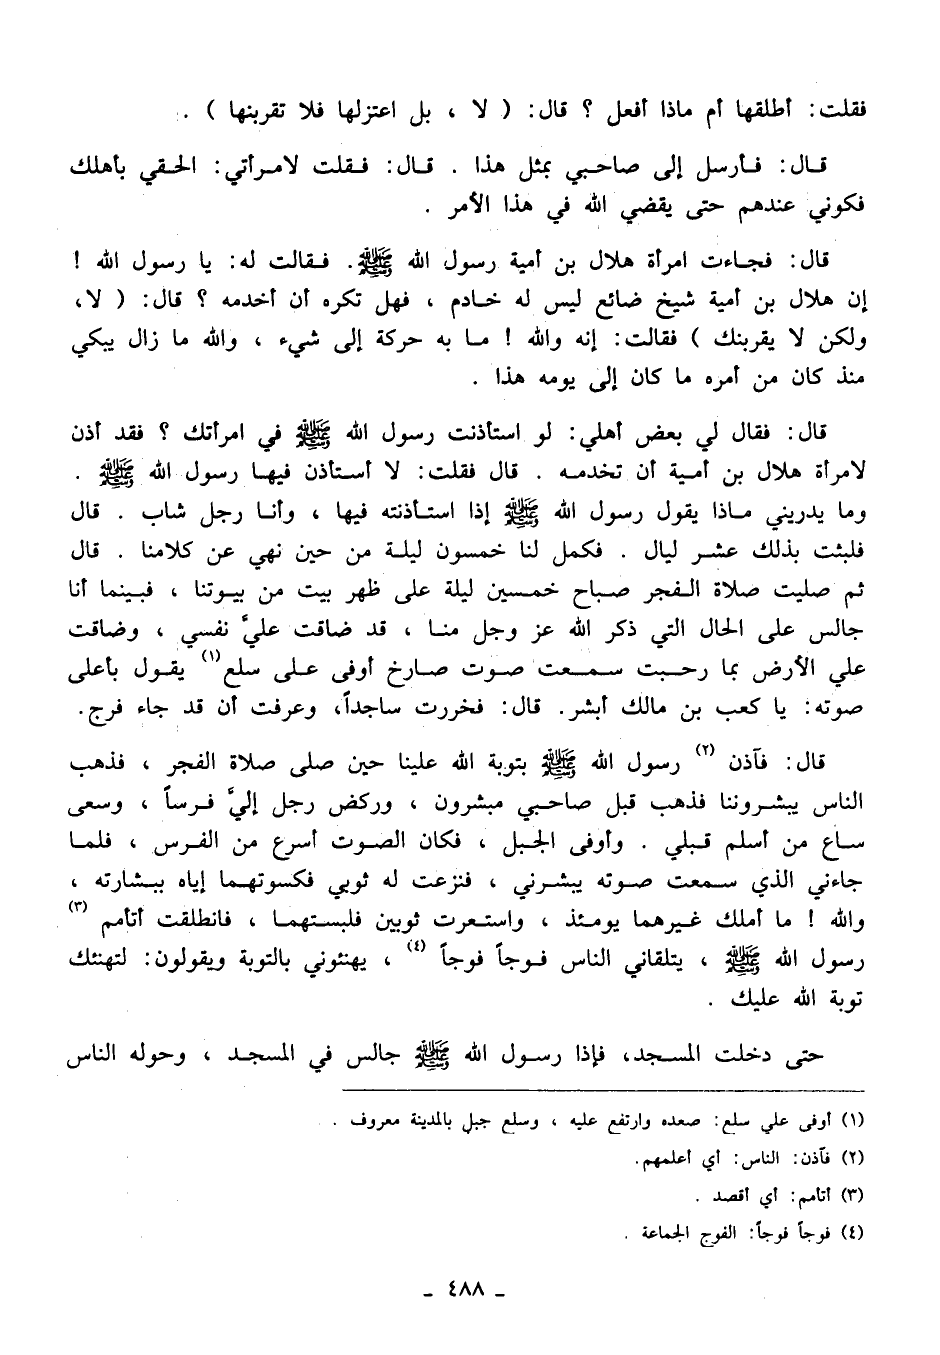 فقلت: أطلقها أم ماذا أفعل ؟ قال: ( لا ، بل اعتزلها فلا تقربنها ) .
قال: فأرسل إلى صاحبي بمثل هذا . قال: فقلت لامرأتي: الحقي بأهلك
فكوني عندهم حتى يقضي الله في هذا الأمر .
قال: فجاءت امرأة هلال بن أمية رسول الله ﷺ. فقالت له: يا رسول الله !
إن هلال بن أمية شيخ ضائع ليس له خادم ، فهل تكره أن أخدمه ؟ قال: ( لا،
ولكن لا يقربنك ) فقالت: إنه والله ! ما به حركة إلى شيء ، والله ما زال يبكي
منذ كان من أمره ما كان إلى يومه هذا .
قال: فقال لي بعض أهلي: لو استأذنت رسول الله ﷺ في امرأتك ؟ فقد أذن
لامرأة هلال بن أمية أن تخدمه . قال فقلت: لا أستأذن فيها رسول الله ﷺ .
وما يدريني ماذا يقول رسول الله ﷺ إذا استأذنته فيها ، وأنا رجل شاب . قال
فلبثت بذلك عشر ليال . فكمل لنا خمسون ليلة من حين نهي عن كلامنا . قال
ثم صليت صلاة الفجر صباح خمسين ليلة على ظهر بيت من بيوتنا ، فبينما أنا
جالس على الحال التي ذكر الله عز وجل منا ، قد ضاقت عليَّ نفسي ، وضاقت
علي الأرض بما رحبت سمعت صوت صارخ أوفى على سلع(١) يقول بأعلى
صوته: يا كعب بن مالك أبشر. قال: فخررت ساجداً، وعرفت أن قد جاء فرج.
قال: فآذن (٢) رسول الله ﷺ بتوبة الله علينا حين صلى صلاة الفجر ، فذهب
الناس يبشروننا فذهب قبل صاحبي مبشرون ، وركض رجل إليَّ فرساً ، وسعى
ساع من أسلم قبلي . وأوفى الجبل ، فكان الصوت أسرع من الفرس ، فلما
جاءني الذي سمعت صوته يبشرني ، فنزعت له ثوبي فكسوتهما إياه ببشارته ،
والله ! ما أملك غيرهما يومئذ ، واستعرت ثوبين فلبستهما ، فانطلقت أتأمم (٣)
رسول الله ﷺ ، يتلقاني الناس فوجاً فوجاً (٤) ، يهنئوني بالتوبة ويقولون: لتهنئك
توبة الله عليك .
حتى دخلت المسجد، فإذا رسول الله ﷺ جالس في المسجد ، وحوله الناس
(١) أوفى علي سلع: صعده وارتفع عليه ، وسلع جبل بالمدينة معروف .
(٢) فآذن: الناس: أي أعلمهم.
(٣) أتأمم: أي أقصد .
(٤) فوجاً فوجاً: الفوج الجماعة .
- ٤٨٨ -